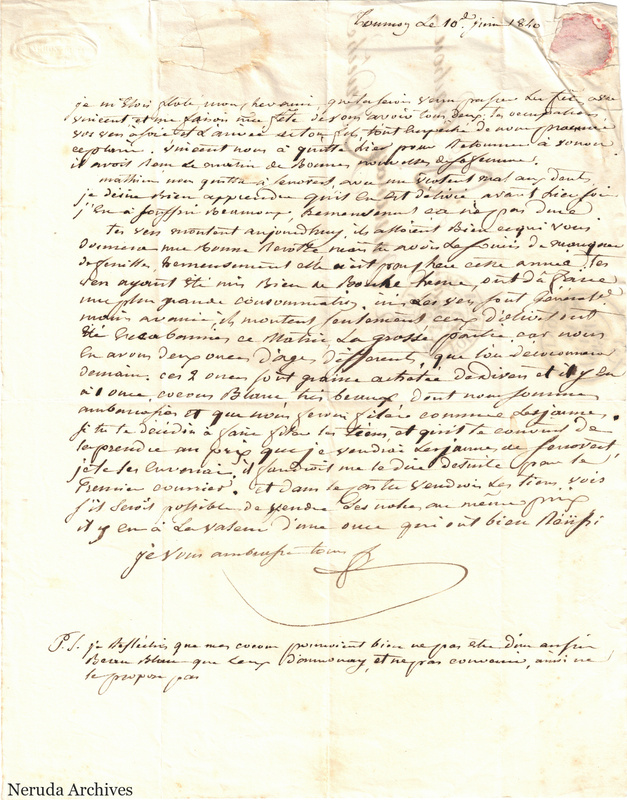 Tournon Le 10 juin 1840
je mettois flaté, mon cher ami, que tu serois venu passer Les fêtes avec
vincent et me faisois une fête de vous avoir tous deux, les occupations
vos vers à soie et L'arrivée de ton fils, tout empêche de nous
ce plaisir. Vincent nous à quitté hier pour Retourner à
il avoit Reçu Le matin de Bonnes nouvelles de sa femme.
mathieu nous quitta à avec une violent mal aux dents
je désire Bien apprendre qu'il En Est délivré, avant hier soir
j'En ai souffert Beaucoup, heureusement ça n'a pas duré
tes vers montent aujourd'huy, ils alloient Bien ce qui vous
donnera une Bonne Récolte mais tu avois Le souci de manquer
de feuilles, heureusement elle n'est pas chere cette année. les
vers ayant été mis Bien de Bonne heure, ont dû faire
une plus grande consommation, ici Les vers sont généralement
moins avancés, ils montent seulement ceux d'olivier ont
Eté Encabannés ce Matin La grosse partie car nous
En avons deux onces d'ages différents, que l'on
demain. ces 2 onces sont graine achetée de divers et il y En
à 1 once, cocons Blanc très beaux dont nous sommes
ambarassés et que nous ferons filer comme Les jaunes.
si tu te décidois à faire filer les tiens, et qu'il te convint de
les prendre au prix que je vendrai Les jaunes de
je te les Enverrai, il faudroit me le dire desuite par le
Premier courrier. et dans le cas tu vendrois Les tiens, vois
s'il seroit possible de vendre Les notres au même prix
il y En à La valeur d'une once qui ont bien Réüssi
je vous ambrasse tous
P.S. je Réfléchis que mes cocons pourroient bien ne pas être d'un aussi
Beau Blanc que Ceux d'annonay, et ne pas convenir, ainsi ne
le propose pas
Neruda Archives